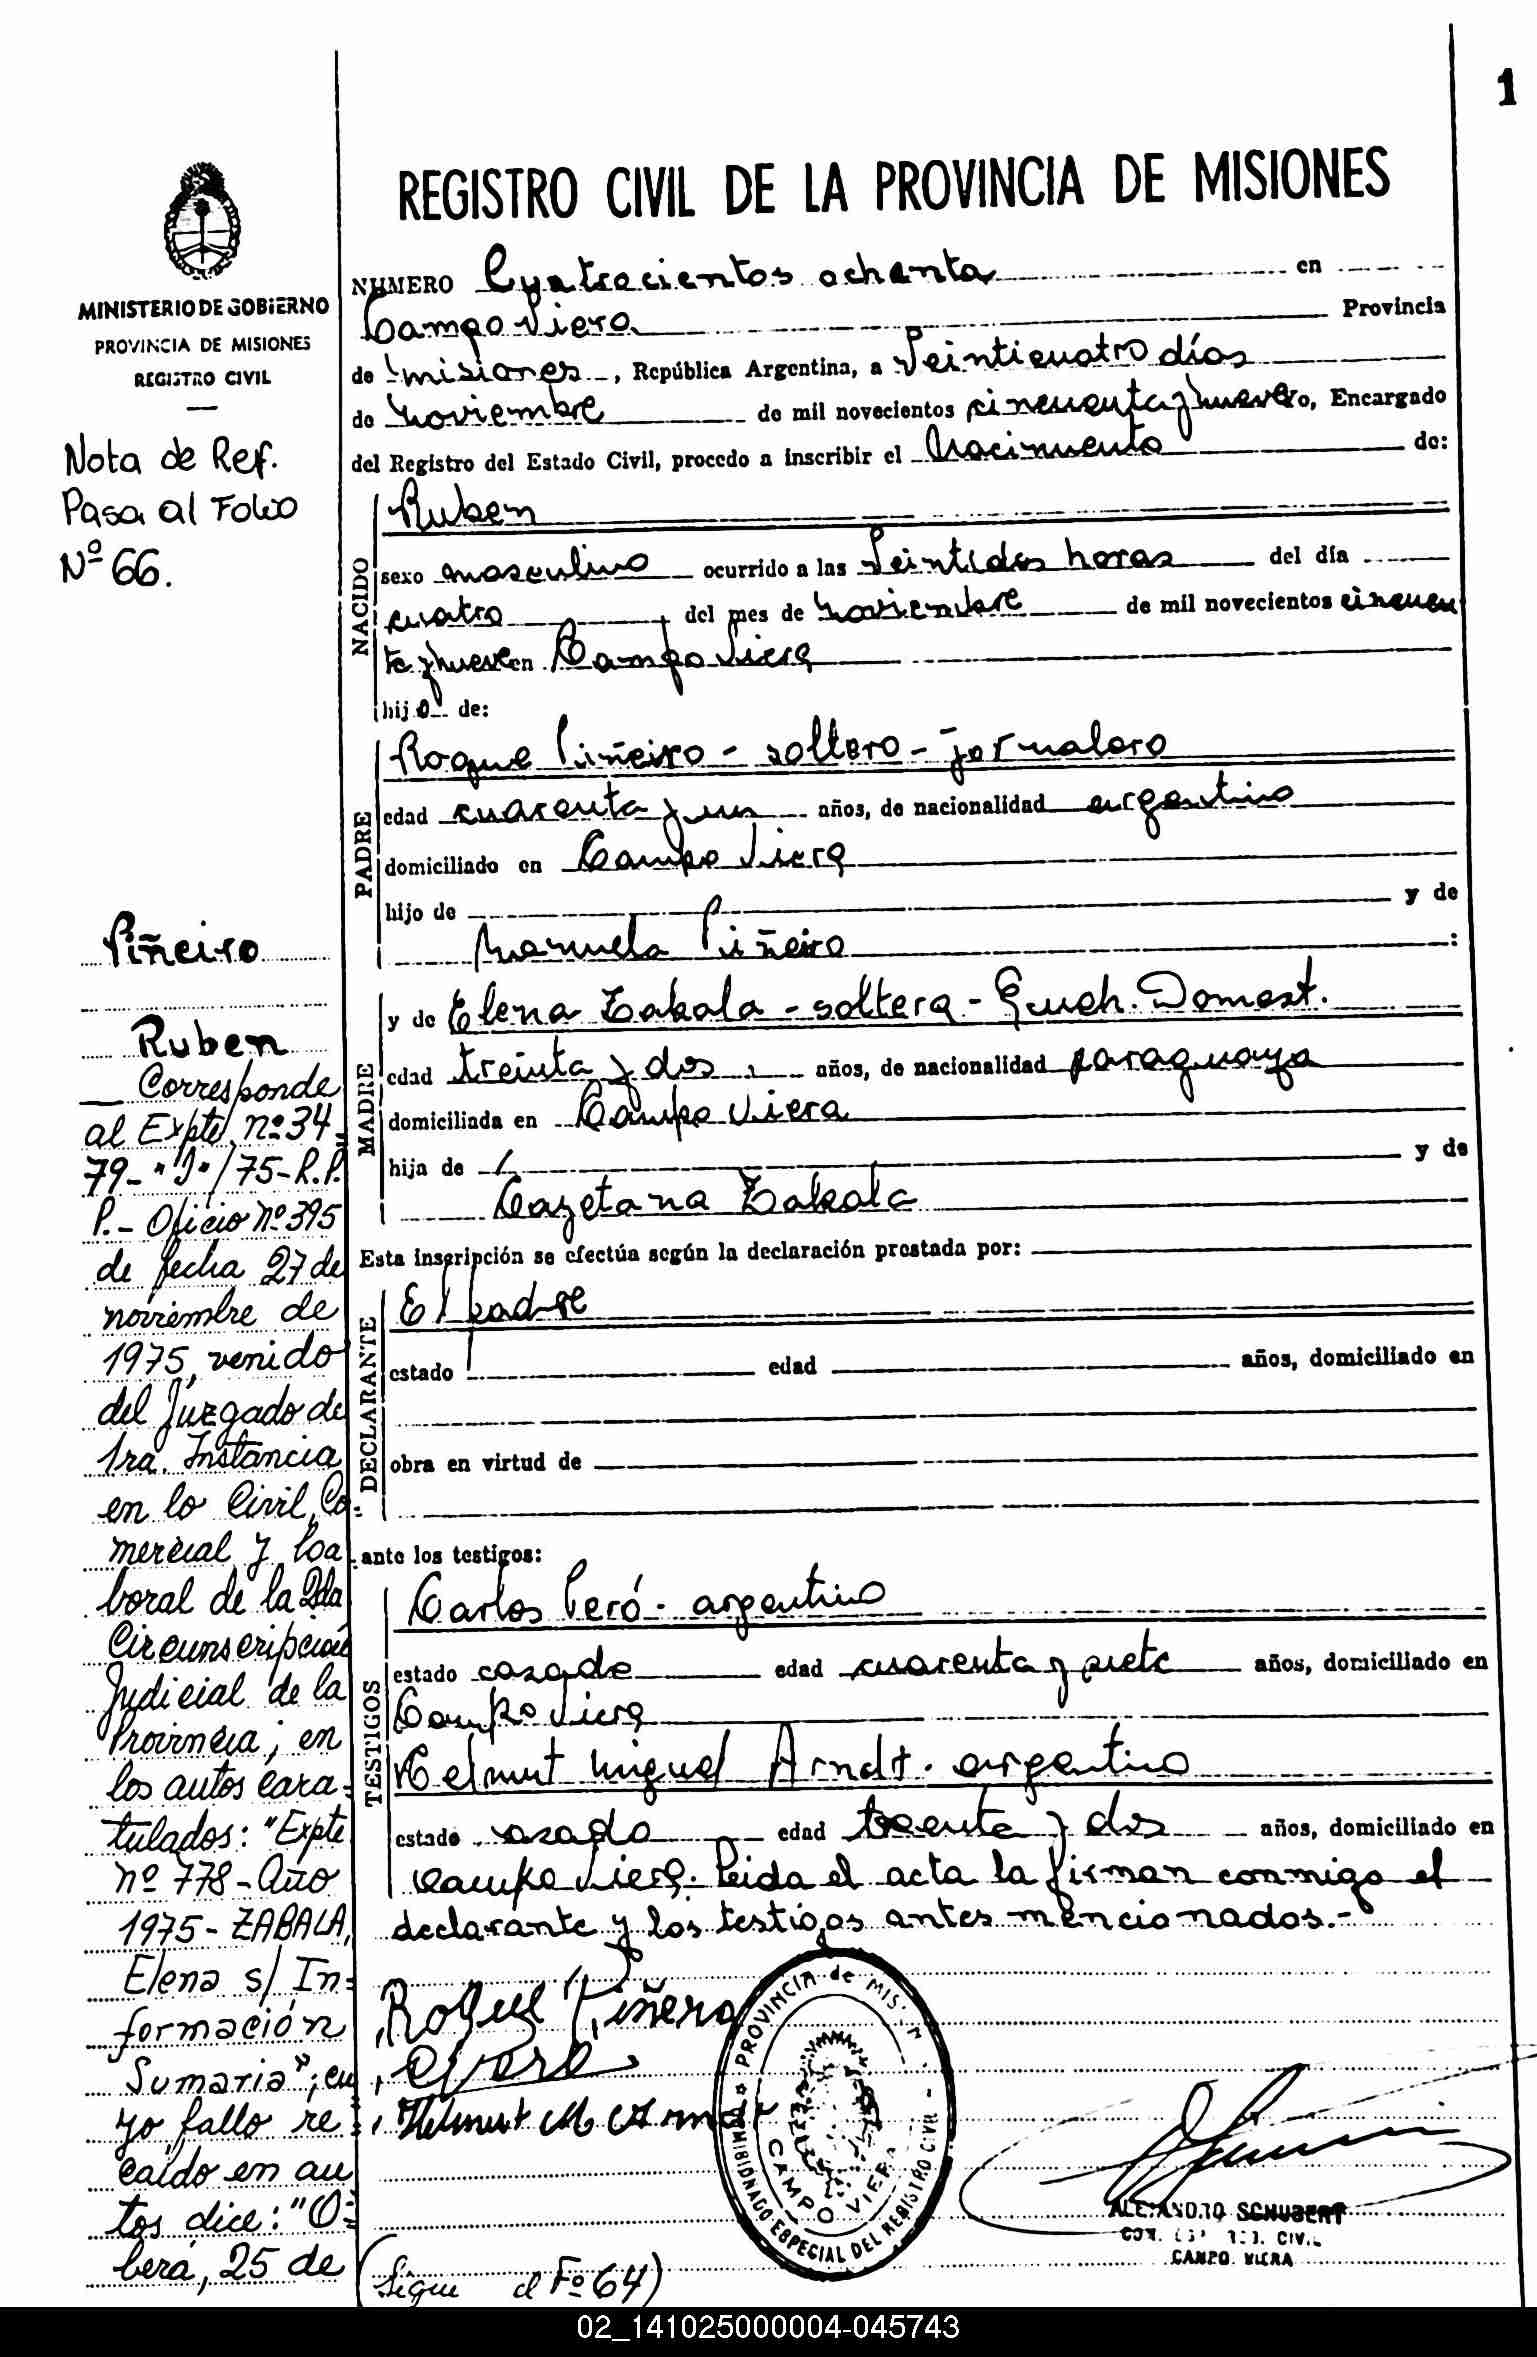 1
REGISTRO CIVIL DE LA PROVINCIA DE MISIONES
MINISTERIO DE GOBIERNO
PROVINCIA DE MISIONES
REGISTRO CIVIL
Nota de Ref.
Pasa al Folio
Nº 66.
Piñeiro
Ruben
Corresponde
al Expte. nº 34
79-"J"/75-R.P.
P.- Oficio Nº 395
de fecha 27 de
noviembre de
1975, venido
del Juzgado de
1ra. Instancia
en lo Civil, Co-
mercial y Laa
boral de la 2da
Circunscripción
Judicial de la
Provincia; en
los autos cara-
tulados: "Expte
nº 778-Año
1975-ZABALA,
Elena s/ In=
formación
Sumaria"; cu
yo fallo re=
caído en au
tos dice: "O=
berá, 25 de
NUMERO Cuatrocientos ochenta en
Campo Viera Provincia
de Misiones, República Argentina, a Veinticuatro días
de Noviembre de mil novecientos cincuenta y nueve Yo, Encargado
del Registro del Estado Civil, procedo a inscribir el Nacimiento de:
NACIDO
Ruben
sexo masculino ocurrido a las Veintidos horas del día
cuatro del mes de Noviembre de mil novecientos cincuen
ta y nueve en Campo Viera
hijo de:
PADRE
Roque Piñeiro - soltero - jornalero
edad cuarenta y un años, de nacionalidad argentino
domiciliado en Campo Viera
hijo de y de
Manuela Piñeiro :
MADRE
y de Elena Zabala - soltera - Queh. Domest.
edad treinta y dos años, de nacionalidad paraguaya
domiciliada en Campo Viera
hija de y de
Cayetana Zabala
Esta inscripción se efectúa según la declaración prestada por:
DECLARANTE
El padre
estado edad años, domiciliado en
obra en virtud de
ante los testigos:
TESTIGOS
Carlos Peró - argentino
estado casado edad cuarenta y siete años, domiciliado en
Campo Viera
Helmut Miguel Arndt - argentino
estado casado edad treinta y dos años, domiciliado en
Campo Viera. Leida el acta la firman conmigo el
declarante y los testigos antes mencionados.-
Roque Piñero
Helmut M. Arndt
PROVINCIA de MISIONES
CAMPO VIERA
COMISIONADO ESPECIAL DEL REGISTRO CIVIL
ALEJANDRO SCHUBERT
CIVIL
CAMPO VIERA
(Sigue al Fº 64)
02_141025000004-045743